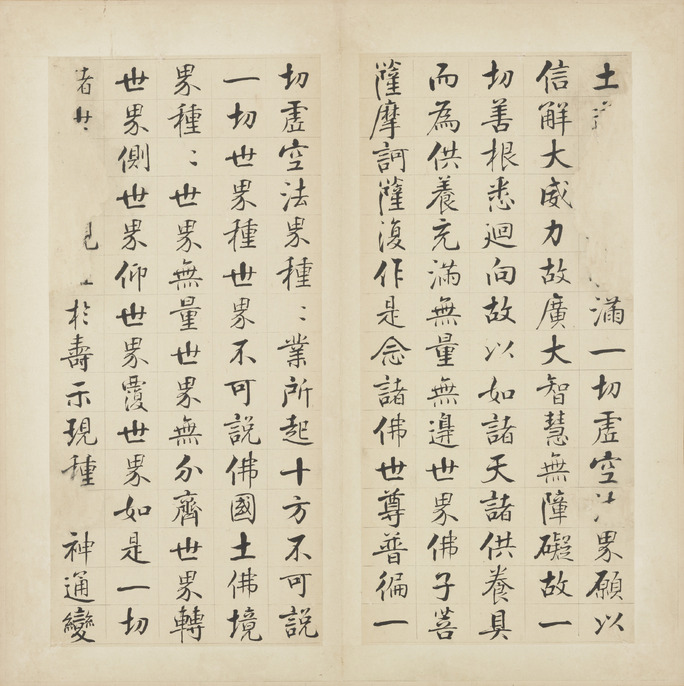 土滿一切虛空界願以
信解大威力故廣大智慧無障礙故一
切善根悉迴向故以如諸天諸供養具
而為供養充滿無量無邊世界佛子菩
薩摩訶薩復作是念諸佛世尊普徧一
切虛空法界種〻業所起十方不可說
一切世界種世界不可說佛國土佛境
界種〻世界無量世界無分齊世界轉
世界側世界仰世界覆世界如是一切
者於壽示現種神通變